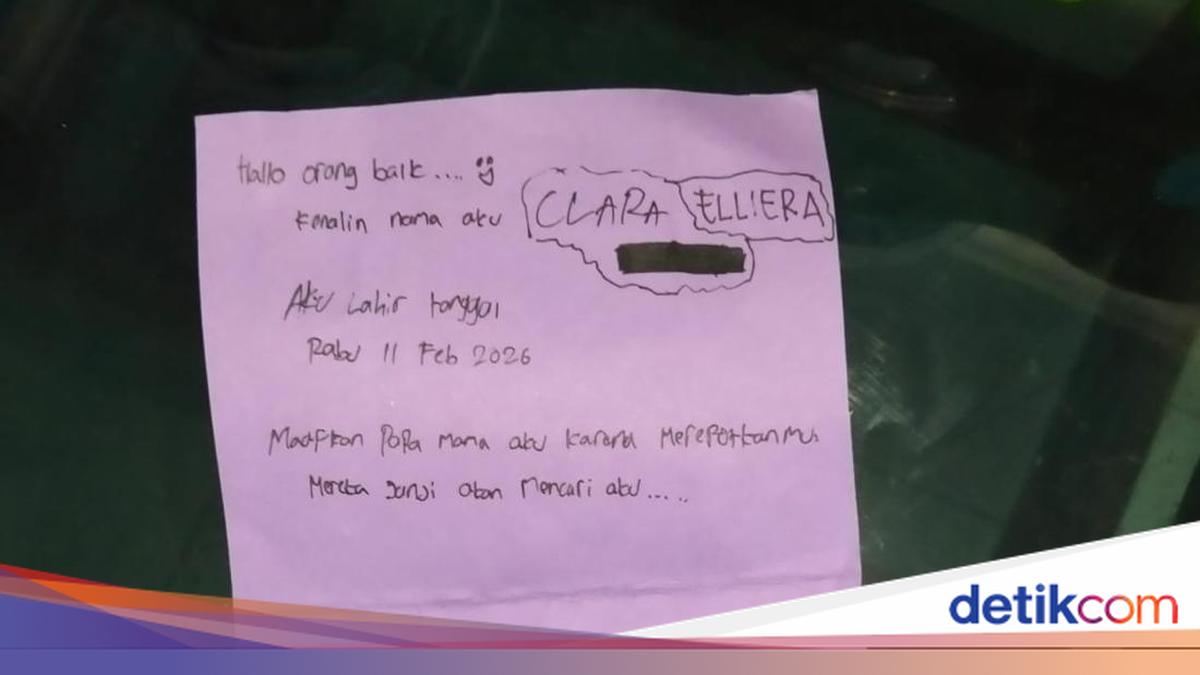 Hallo orang baik....
Kenalin nama aku CLARA ELLIERA
Aku Lahir tanggal
Rabu 11 Feb 2026
Maafkan Papa Mama aku karena merepotkanmu,
Mereka janji akan mencari aku.....
detikcom